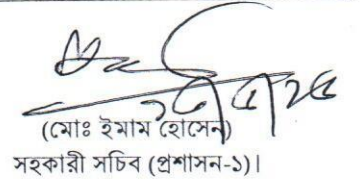 (মোঃ ইমাম হোসেন)
সহকারী সচিব (প্রশাসন-১)।